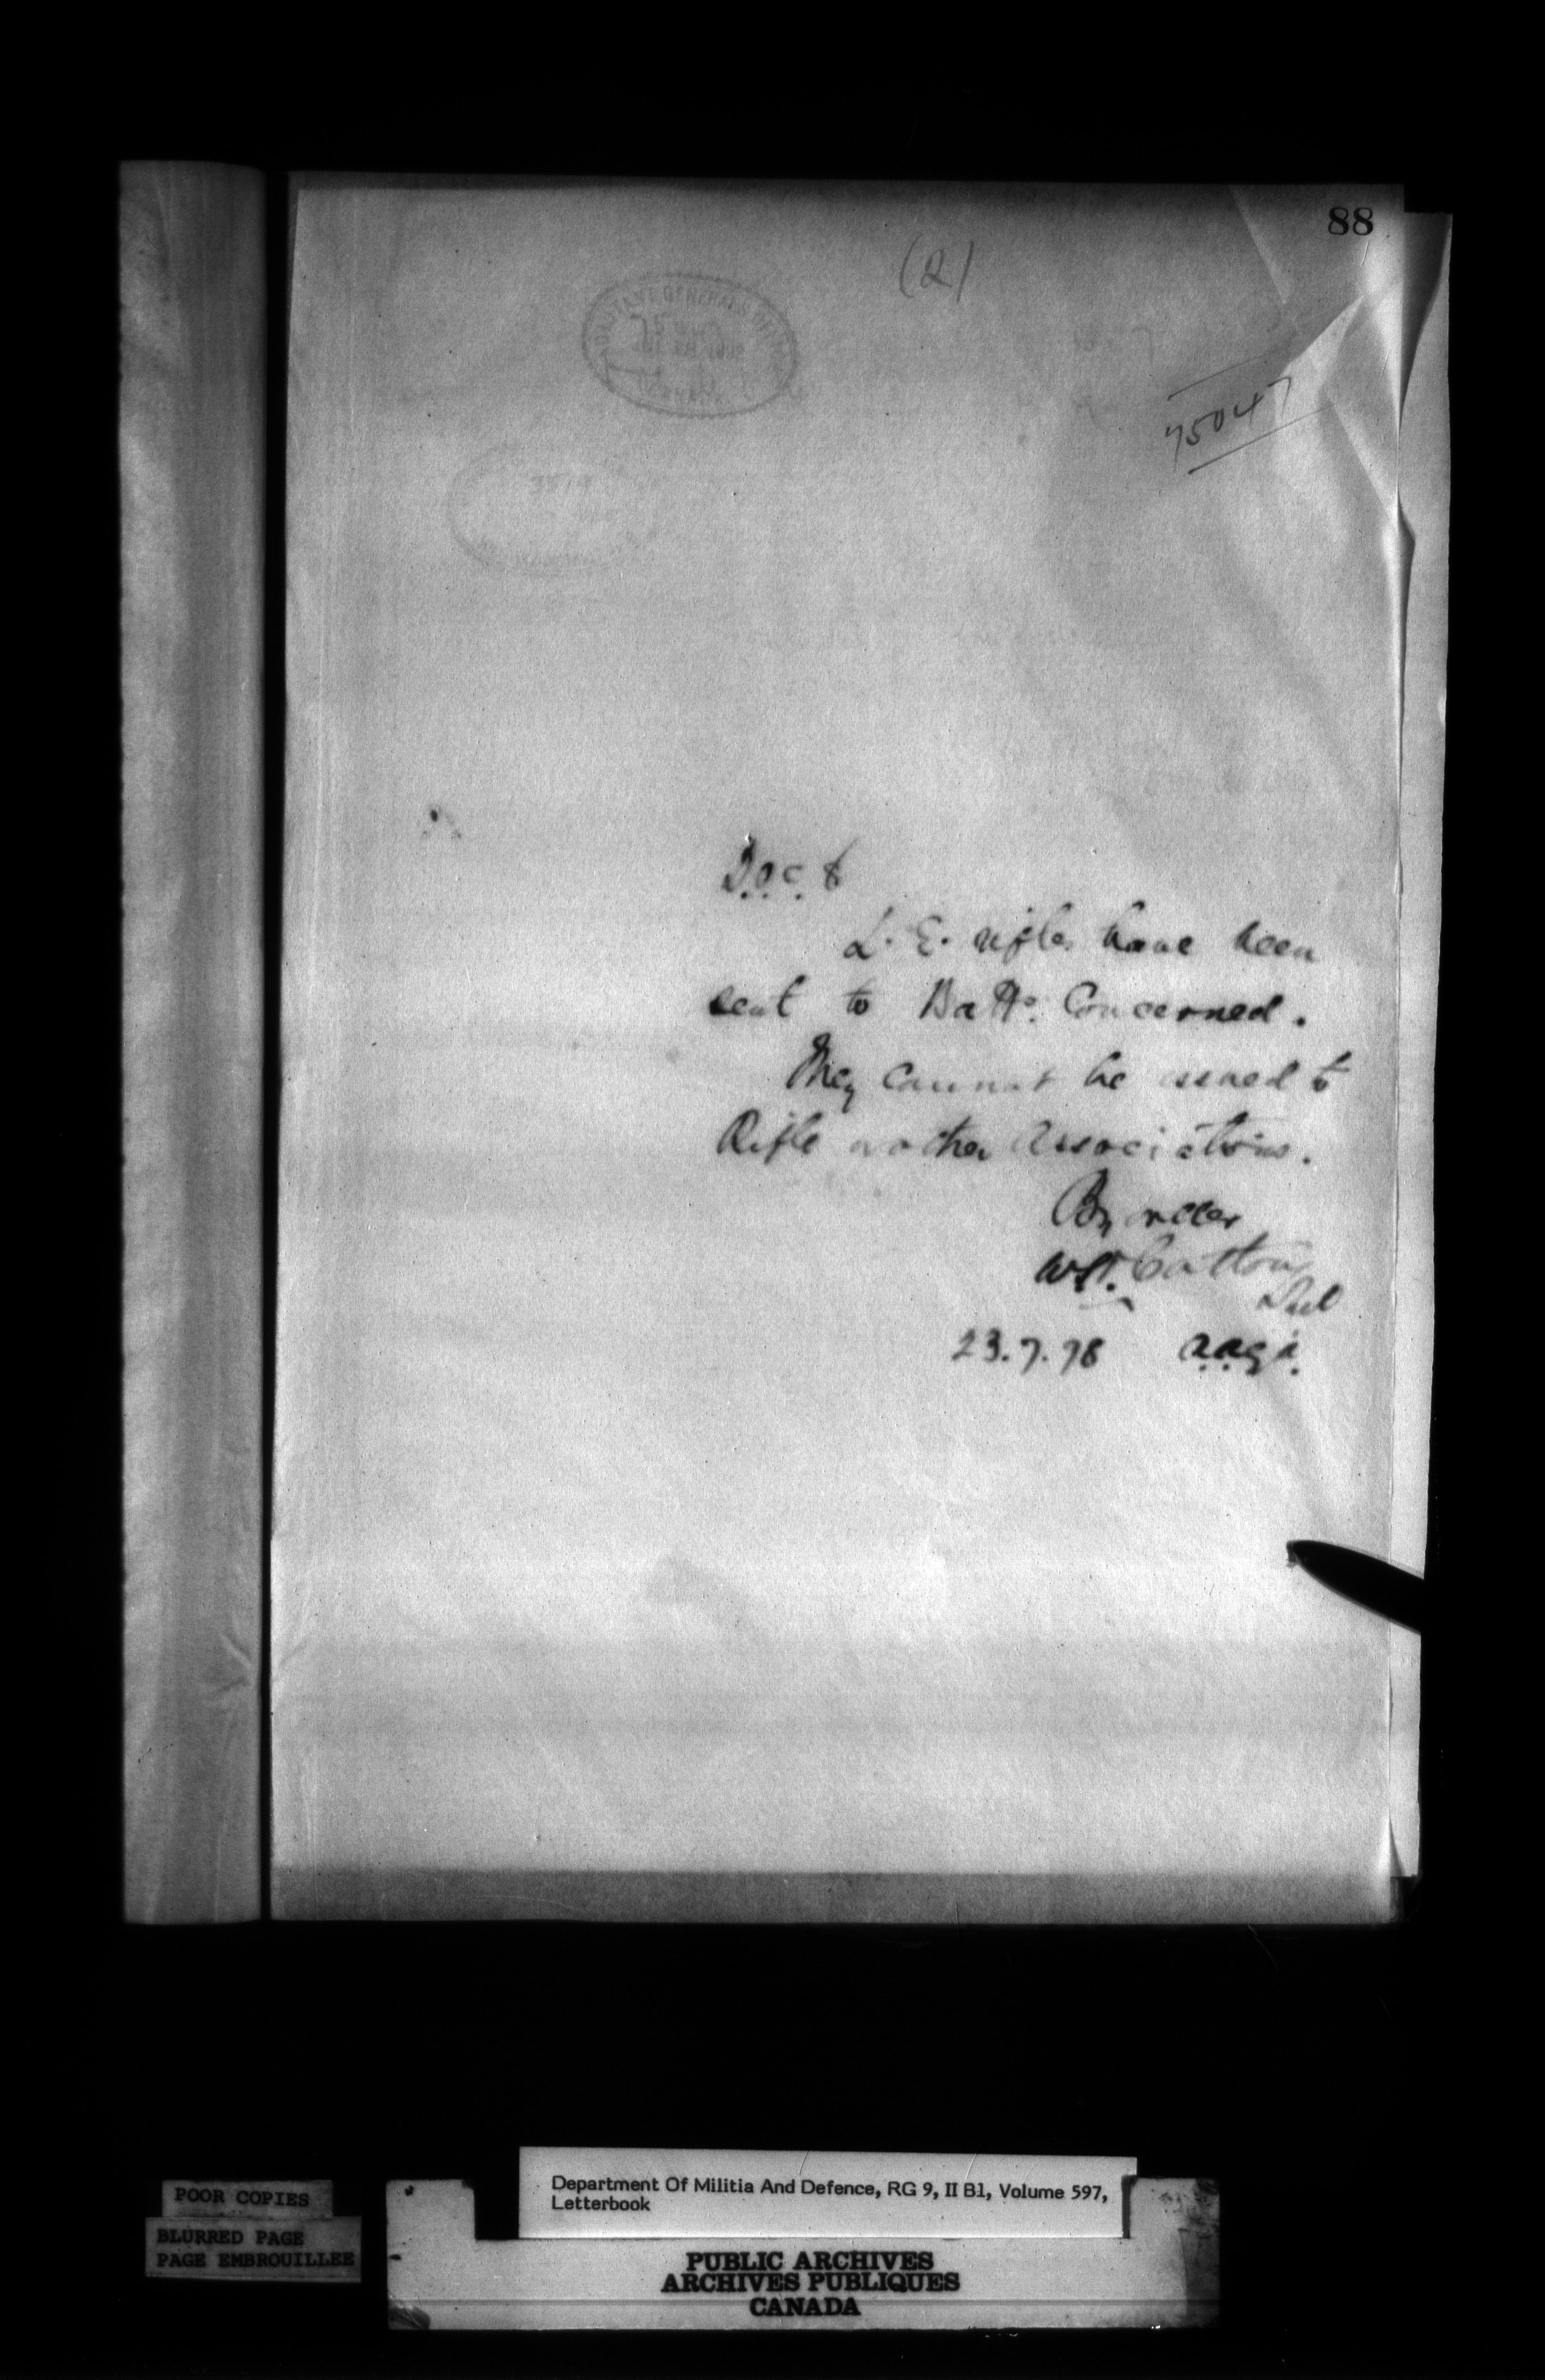 88
(2)
ADJUTANT GENERAL'S OFFICE
CANADA
75047
D.O.C. 8
L. E. rifles have been
sent to Batts. Concerned.
They cannot be issued to
Rifle or other Associations.
By order
Cotton
23.7.98 A.A.G.A.
POOR COPIES
BLURRED PAGE
PAGE EMBROUILLEE
Department Of Militia And Defence, RG 9, II B1, Volume 597,
Letterbook
PUBLIC ARCHIVES
ARCHIVES PUBLIQUES
CANADA